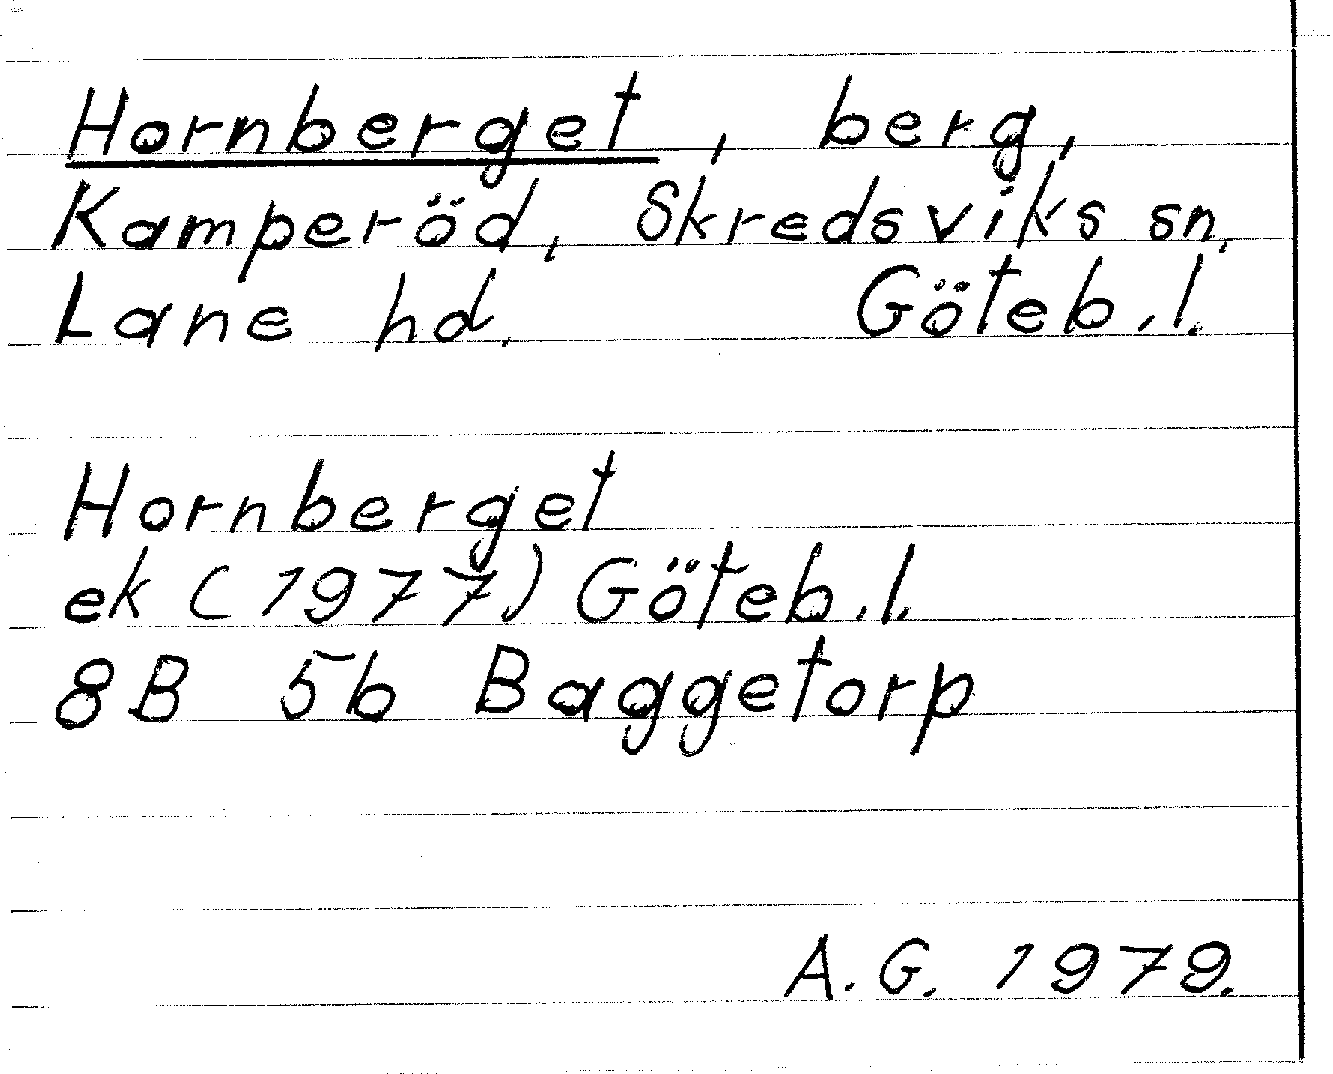 Hornberget, berg,
Kamperöd, Skredsviks sn.
Lane hd. Göteb.l.
Hornberget
ek (1977) Göteb.l.
8B 5b Baggetorp
A.G. 1979.